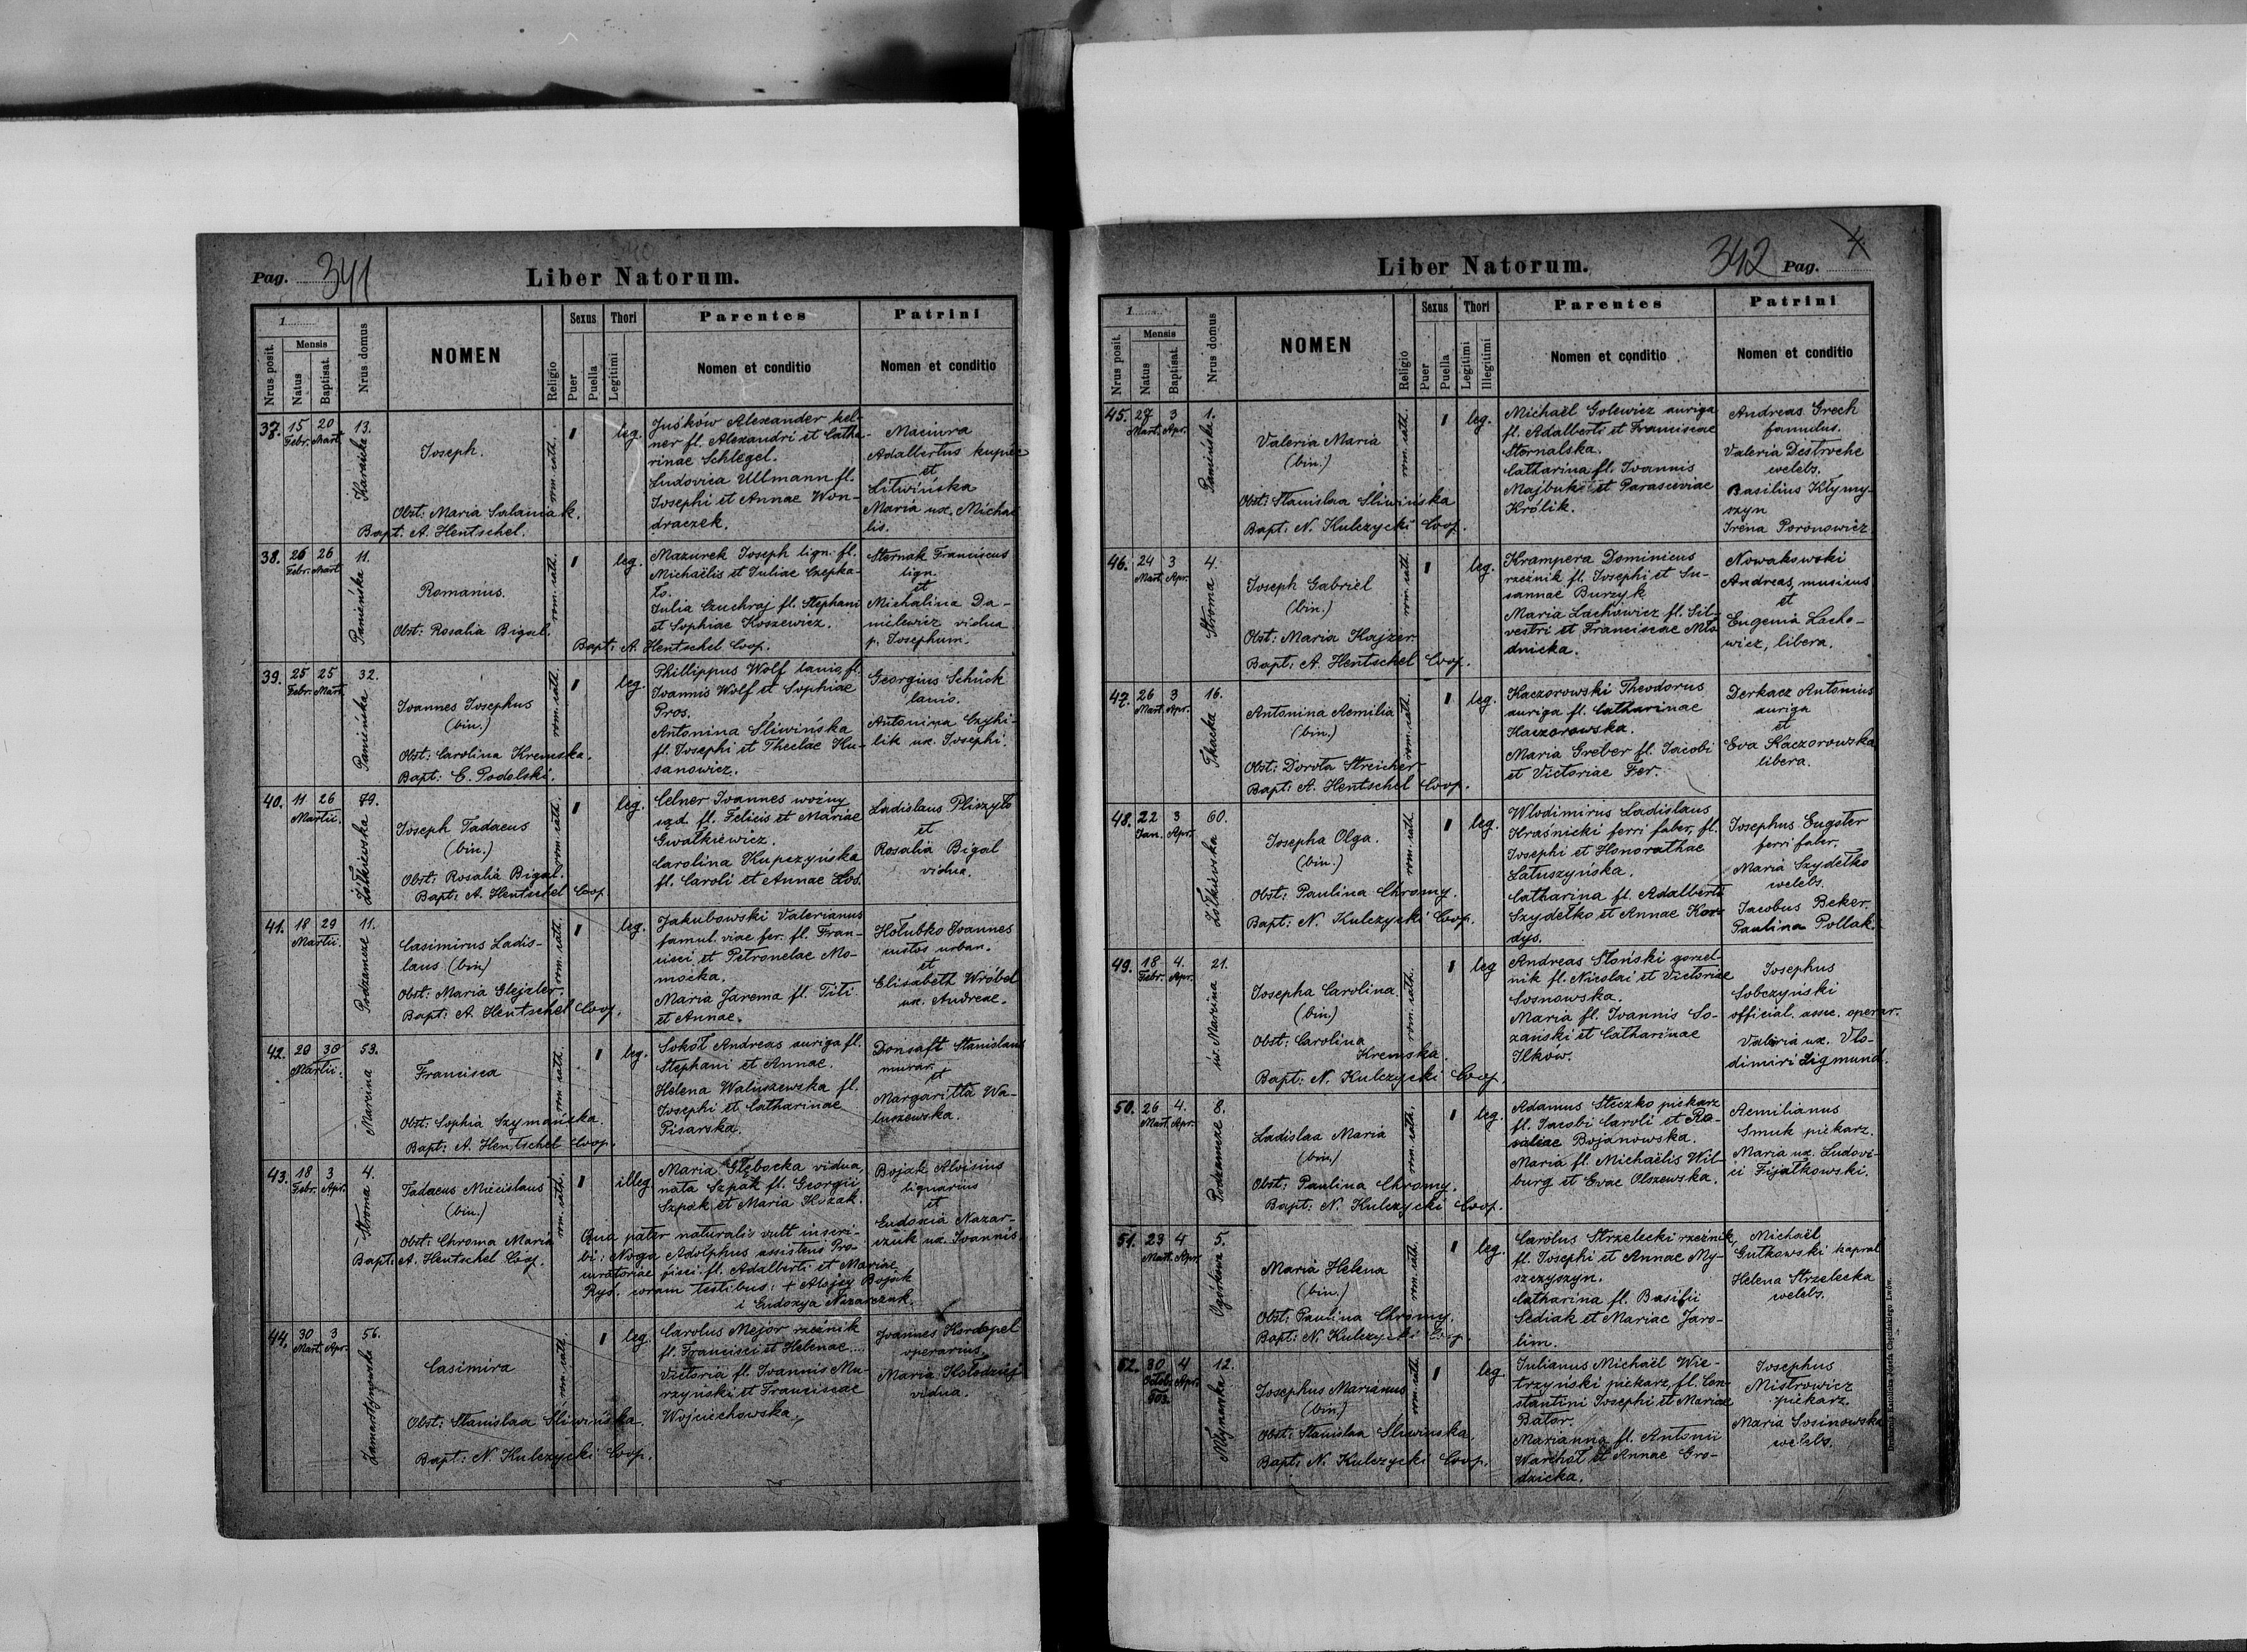 Pag. 341
Liber Natorum.
1
Nrus posit.
Mensis
Natus
Baptisat.
Nrus domus
NOMEN
Religio
Sexus
Puer
Puella
Thori
Legitimi
Parentes
Nomen et conditio
Patrini
Nomen et conditio
37. 15 Febr. 20 Mart. 13.
Joseph.
Obst: Maria Salamak.
Bapt: A. Hentschel.
rom. cath. 1 leg.
Juśków Alexander kel-
ner fl. Alexandri et Catha-
rinae Schlegel.
Ludovica Ullmann fl.
Josephi et Annae Won-
draczek.
Maciura
Adalbertus kupiec
et
Litwińska
Maria ux. Michae
lis.
38. 26 Febr. 26 Mart. 11.
Romanus.
Obst: Rosalia Bigal.
Bapt: A. Hentschel Coop.
rom. cath. 1 leg.
Mazurek Joseph lign. fl.
Michaëlis et Juliae Czepka-
ło.
Julia Czuchraj fl. Stephani
et Sophiae Koszewicz.
Sternak Franciscus
lign.
et
Michalina Da-
nilewicz vidua
p. Josephum.
39. 25 Febr. 25 Mart. 32.
Joannes Josephus
(bin.)
Obst: Carolina Kremska.
Bapt: C. Podolski.
rom. cath. 1 leg.
Phillippus Wolf lanio fl.
Joannis Wolf et Sophiae
Pros.
Antonina Śliwińska
fl. Josephi et Theclae Ku-
sanowicz.
Georgius Schück
lanio.
Antonina Czyhi-
lik ux. Josephi.
40. 11 26 Martii. 79.
Żółkiewska
Joseph Tadaeus
(bin.)
Obst: Rosalia Bigal.
Bapt: A. Hentschel Coop.
rom. cath. 1 leg.
Celner Joannes woźny
sąd. fl. Felicis et Mariae
Gwałkiewicz.
Carolina Kupczyńska
fl. Caroli et Annae Los.
Ladislaus Pliszyło
et
Rosalia Bigal
vidua.
41. 18 29 Martii. 11.
Podzamcze
Casimirus Ladis-
laus (bin)
Obst: Maria Glejzler.
Bapt: A. Hentschel Coop.
rom. cath. 1 leg.
Jakubowski Valerianus
famul. viae fer. fl. Fran-
cisci et Petronelae Mo-
mocka.
Maria Jarema fl. Titi
et Annae.
Hołubko Joannes
custos urban.
et
Elisabeth Wróbel
ux. Andreae.
42. 20 30 Martii. 53.
Marcina
Francisca
Obst: Sophia Szymańska.
Bapt: A. Hentschel Coop.
rom. cath. 1 leg.
Sokół Andreas auriga fl.
Stephani et Annae.
Helena Waluszewska fl.
Josephi et Catharinae
Pisarska.
Donsaft Stanislaus
murar.
et
Margaritta Wa-
luszewska.
43. 18 Febr. 3 Apr. 4.
Stroma
Tadaeus Miecislaus
(bin.)
Obst: Chroma Maria
Bapt: A. Hentschel Coop.
rom. cath. 1 illeg
Maria Głębocka vidua,
nata Szpak fl. Georgii
Szpak et Maria Hozak.
Qua pater naturalis vult inscri-
bi: Noga Adolphus assistens Pro-
curatoriae fisci fl. Adalberti et Mariae
Ryś. coram testibus: + Alojzy Bojak
i Eudoxya Nazarczuk.
Bojak Aloisius
lignarius
et
Eudoxia Nazar-
czuk ux. Joannis
44. 30 Mart. 3 Apr. 56.
Zamarstynowska
Casimira
Obst: Stanislaa Śliwińska.
Bapt: N. Kulczycki Coop.
rom. cath. 1 leg.
Carolus Mejor rzeźnik
fl. Francisci et Helenae....
Victoria fl. Joannis Mu-
rzyński et Franciscae
Wojciechowska.
Joannes Kordopel
operarius.
Maria Kołodziej
vidua.
Liber Natorum.
342 Pag. 4
1
Nrus posit.
Mensis
Natus
Baptisat.
Nrus domus
NOMEN
Religio
Sexus
Puer
Puella
Thori
Legitimi
Illegitimi
Parentes
Nomen et conditio
Patrini
Nomen et conditio
45. 27 Mart. 3 Apr. 1.
Valeria Maria
(bin.)
Obst: Stanislaa Śliwińska
Bapt: N. Kulczycki Coop.
rom. cath. 1 leg.
Michaël Golewicz auriga
fl. Adalberti et Franciscae
Stornalska.
Catharina fl. Joannis
Majbuk et Parasceviae
Królik.
Andreas Grech
famulus.
Valeria Destroche
welebs.
Basilius Kłymy-
szyn
Irena Poronowicz
46. 24 Mart. 3 Apr. 4.
Stroma
Joseph Gabriel
(bin.)
Obst: Maria Kajzer
Bapt: A. Hentschel Coop.
rom. cath. 1 leg.
Krampera Dominicus
rzeźnik fl. Josephi et Su-
sannae Burzyk
Maria Lachowicz fl. Sil-
vestri et Franciscae Mło
dnicka.
Nowakowski
Andreas, musicus
et
Eugenia Lacho-
wicz, libera.
47. 26 Mart. 3 Apr. 16.
Tkacka
Antonina Aemilia
(bin.)
Obst: Dorota Streicher
Bapt: A. Hentschel Coop.
rom. cath. 1 leg.
Kaczorowski Theodorus
auriga fl. Catharinae
Kaczorowska.
Maria Greber fl. Jacobi
et Victoriae Fer.
Derkacz Antonius
auriga
et
Eva Kaczorowska
libera.
48. 22 Jan. 3 Apr. 60.
Żółkiewska
Josepha Olga.
(bin.)
Obst: Paulina Chromy.
Bapt: N. Kulczycki Coop.
rom. cath. 1 leg.
Wlodimirus Ladislaus
Kraśnicki ferri faber, fl.
Josephi et Honorathae
Latuszyńska.
Catharina fl. Adalberti
Szydełko et Annae Kor-
dys.
Josephus Eugster
ferri faber.
Maria Szydełko
welebs.
Jacobus Beker.
Paulina Pollak.
49. 18 Febr. 4. Apr. 21.
św. Marcina
Josepha Carolina.
(bin)
Obst: Carolina
Kremska.
Bapt: N. Kulczycki Coop.
rom. cath. 1 leg
Andreas Słoński gorzel-
nik fl. Nicolai et Victoriae
Sosnowska.
Maria fl. Joannis So-
zański et Catharinae
Ilków.
Josephus
Sobczyński
official. assec. operar.
Valeria ux. Vlo-
dimiri Zigmund.
50. 26 Mart. 4. Apr. 8.
Podzamcze
Ladislaa Maria
(bin.)
Obst: Paulina Chromy.
Bapt: N. Kulczycki Coop.
rom. cath. 1 leg.
Adamus Steczko piekarz
fl. Jacobi Caroli et Ro-
saliae Bojanowska.
Maria fl. Michaëlis Wil-
burg et Evae Olszewska.
Aemilianus
Smuk piekarz.
Maria ux. Ludovi-
ci Fijałkowski.
51. 23 Mart. 4 Apr.
Ogórkowa
Maria Helena
(bin.)
Obst. Paulina Chromy.
Bapt: N. Kulczycki Coop.
rom. cath. 1 leg.
Carolus Strzelecki rzeźnik,
fl. Josephi et Annae My-
szczyszyn.
Catharina fl. Basilii
Sediak et Mariae Jaro-
lim.
Michaël
Gutkowski kapral
Helena Strzelecka
welebs.
52. 30 Octob. 903. 4 Apr. 12.
Młynarska
Josephus Marianus
(bin)
Obst: Stanislaa Śliwińska.
Bapt: N. Kulczycki Coop.
rom. cath. 1 leg
Julianus Michaël Wie-
trzyński piekarz, fl. Con-
stantini Josephi et Mariae
Bator.
Marianna fl. Antonii
Warchoł et Annae Gro-
dzicka.
Josephus
Mistrowicz
piekarz.
Maria Sosinowska
welebs.
Drukarnia Katolicka Józefa Chęcińskiego Lwów.